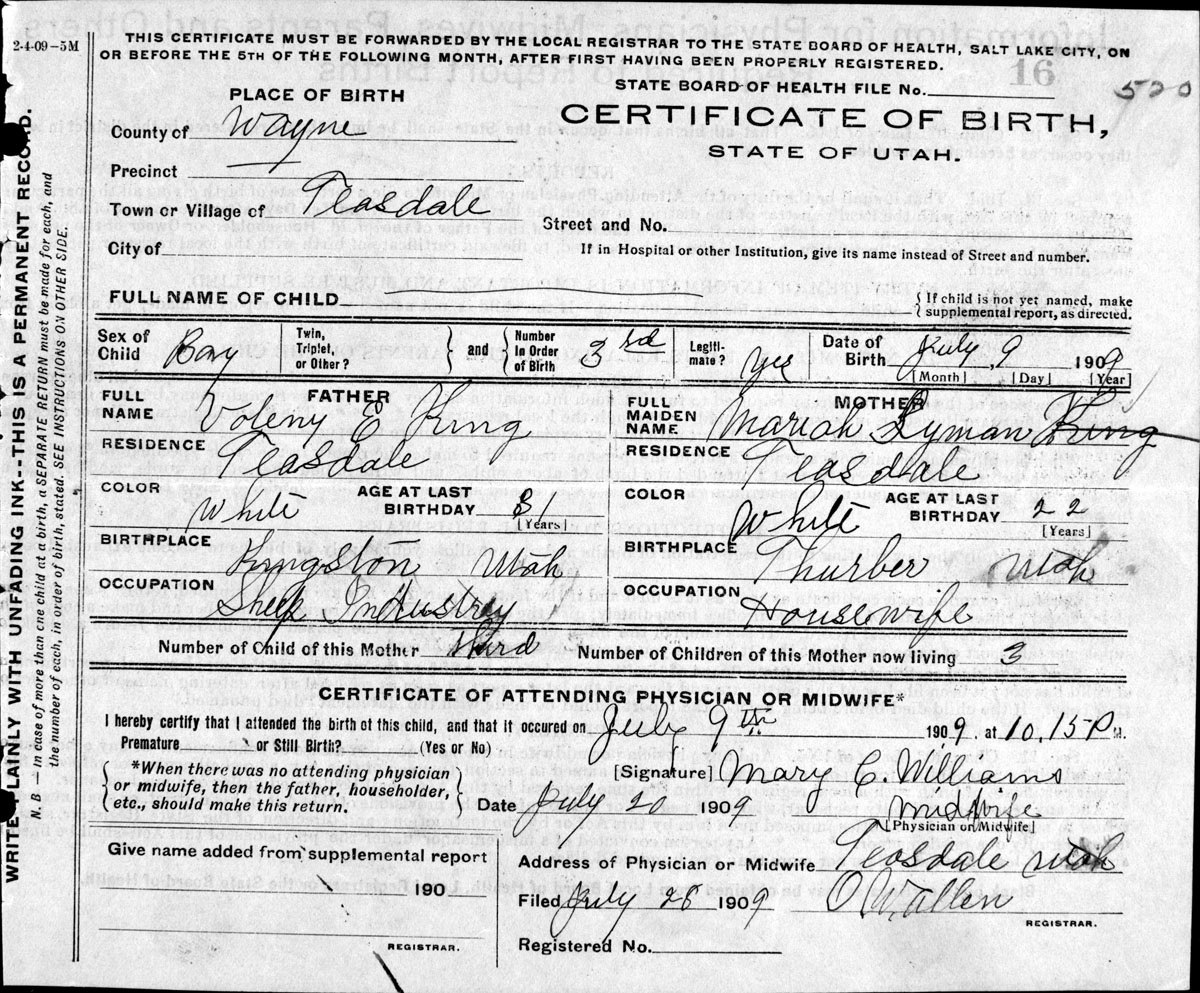 2-4-09-5M
THIS CERTIFICATE MUST BE FORWARDED BY THE LOCAL REGISTRAR TO THE STATE BOARD OF HEALTH, SALT LAKE CITY, ON
OR BEFORE THE 5TH OF THE FOLLOWING MONTH, AFTER FIRST HAVING BEEN PROPERLY REGISTERED.
16
520
STATE BOARD OF HEALTH FILE No.
PLACE OF BIRTH
CERTIFICATE OF BIRTH,
STATE OF UTAH.
County of Wayne
Precinct
Town or Village of Teasdale
Street and No.
City of
If in Hospital or other Institution, give its name instead of Street and number.
FULL NAME OF CHILD
{ If child is not yet named, make
supplemental report, as directed.
Sex of Child Boy
Twin, Triplet, or Other? } and { Number In Order of Birth 3rd
Legiti- mate? yes
Date of Birth July, 9 1909
[Month] [Day] [Year]
FATHER
FULL NAME Voleny E King
RESIDENCE Teasdale
COLOR White
AGE AT LAST BIRTHDAY 31 [Years]
BIRTHPLACE Kingston Utah
OCCUPATION Sheep Industrey
MOTHER
FULL MAIDEN NAME Mariah Lyman King
RESIDENCE Teasdale
COLOR White
AGE AT LAST BIRTHDAY 22 [Years]
BIRTHPLACE Thurber Utah
OCCUPATION Housewife
Number of Child of this Mother Third
Number of Children of this Mother now living 3
CERTIFICATE OF ATTENDING PHYSICIAN OR MIDWIFE*
I hereby certify that I attended the birth of this child, and that it occured on July 9th 1909. at 10,15 P M.
Premature or Still Birth? (Yes or No)
{ *When there was no attending physician
or midwife, then the father, householder,
etc., should make this return. }
[Signature] Mary C. Williams
Date July 20 1909
Midwife
[Physician or Midwife]
Give name added from supplemental report
190
REGISTRAR.
Address of Physician or Midwife Teasdale Utah
Filed July 28 1909
O W. Allen
REGISTRAR.
Registered No.
WRITE PLAINLY WITH UNFADING INK--THIS IS A PERMANENT RECORD.
N. B.—In case of more than one child at a birth, a SEPARATE RETURN must be made for each, and
the number of each, in order of birth, stated. SEE INSTRUCTIONS ON OTHER SIDE.